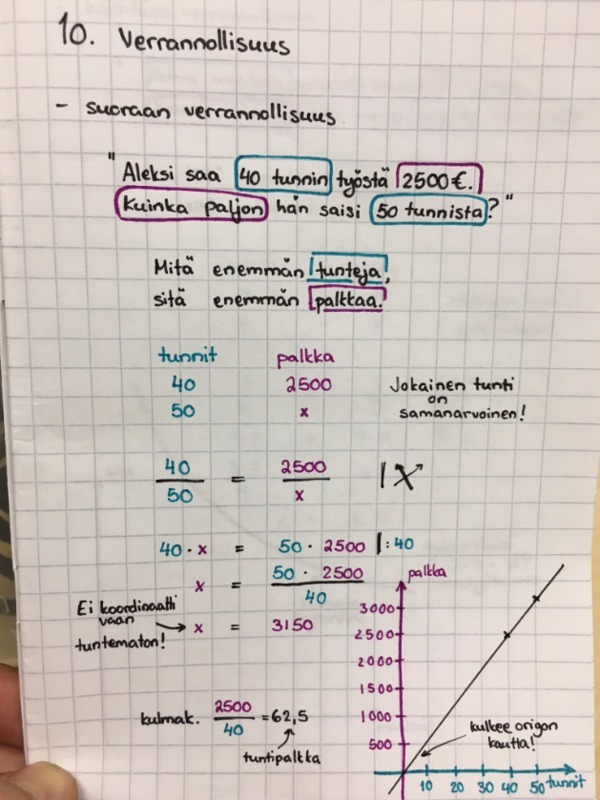 10. Verrannollisuus
- suoraan verrannollisuus
"Aleksi saa 40 tunnin työstä 2500€.
Kuinka paljon hän saisi 50 tunnista?"
Mitä enemmän tunteja,
sitä enemmän palkkaa.
tunnit palkka
40 2500
50 x
Jokainen tunti
on
samanarvoinen!
40/50 = 2500/x | X
40 · x = 50 · 2500 |: 40
x = 50 · 2500 / 40
x = 3150
Ei koordinaatti
vaan
tuntematon!
kulmak. 2500/40 = 62,5
tuntipalkka
palkka
3000
2500
2000
1500
1000
500
kulkee origon
kautta!
10 20 30 40 50 tunnit